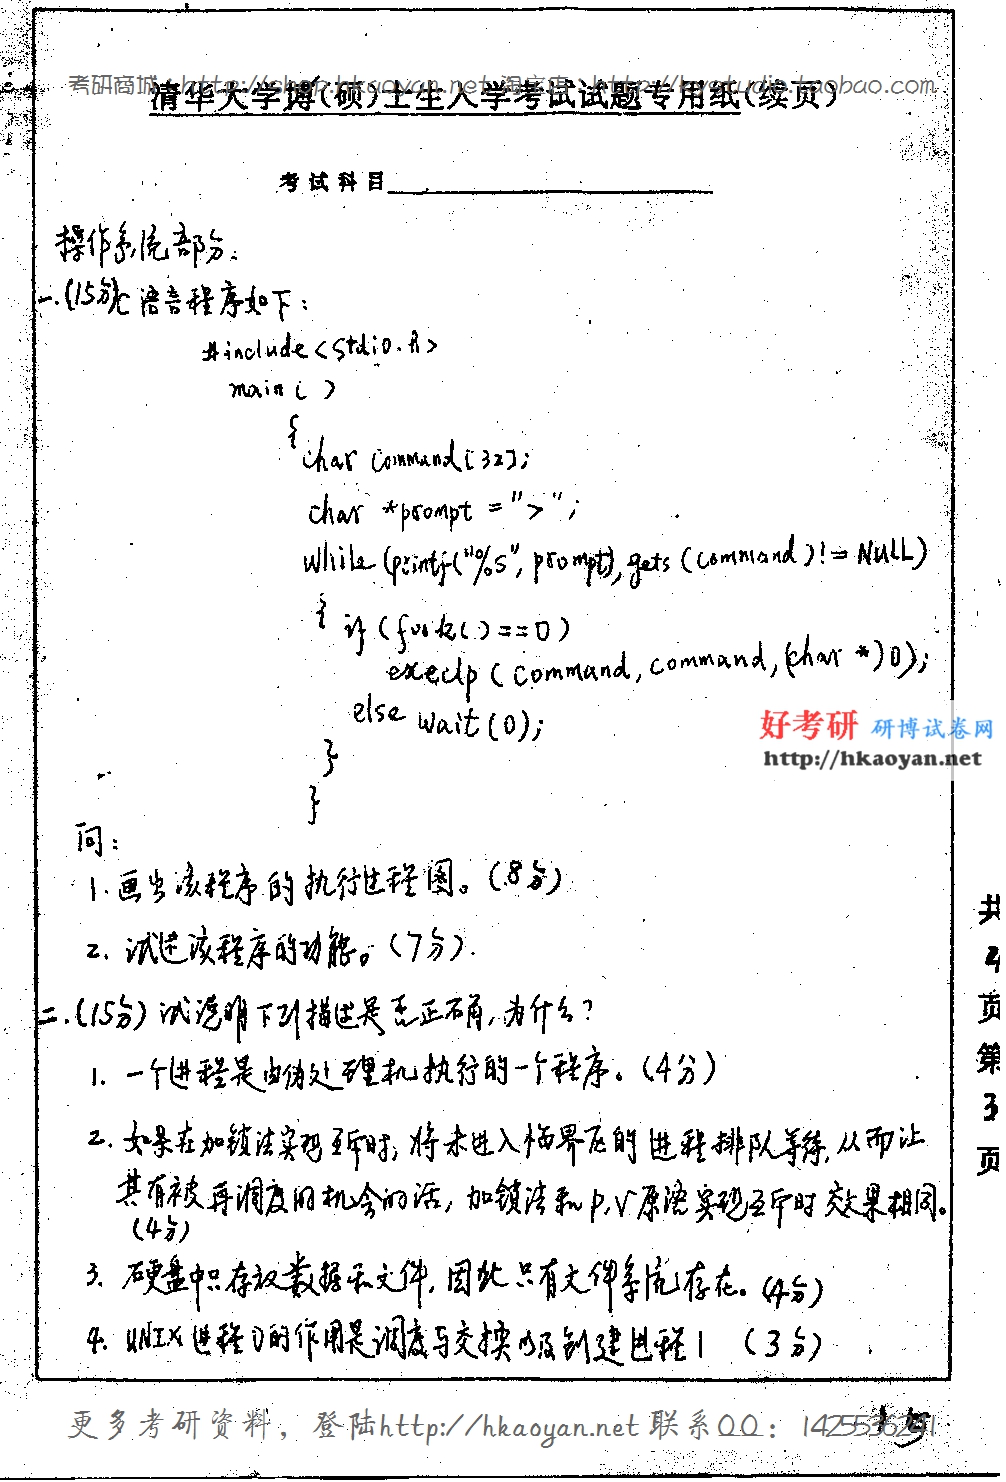 考研商城：http://shop.hkaoyan.net 淘宝店：http://hystudio.taobao.com
清华大学博(硕)士生入学考试试题专用纸(续页)
考试科目
操作系统部分：
一.(15分)C语言程序如下：
#include<stdio.h>
main( )
{
char command[32];
char *prompt = ">";
while (printf("%s", prompt), gets (command) != NULL)
{ if (fork( ) == 0)
execlp ( command, command, (char *) 0);
else wait (0);
}
}
问：
1. 画出该程序的执行过程图。(8分)
2. 试述该程序的功能。(7分).
二.(15分) 试说明下列描述是否正确,为什么?
1. 一个进程是由伪处理机执行的一个程序。(4分)
2. 如果在加锁法实现互斥时,将未进入临界区的进程排队等待,从而让
其有被再调度的机会的话,加锁法和P,V原语实现互斥时效果相同。
(4分)
3. 硬盘中只存放数据和文件,因此只有文件系统存在。(4分)
4. UNIX进程0的作用是调度与交换以及创建进程1 (3分)
好考研 研博试卷网
http://hkaoyan.net
共
4
页
第
3
页
更多考研资料，登陆http://hkaoyan.net 联系QQ：